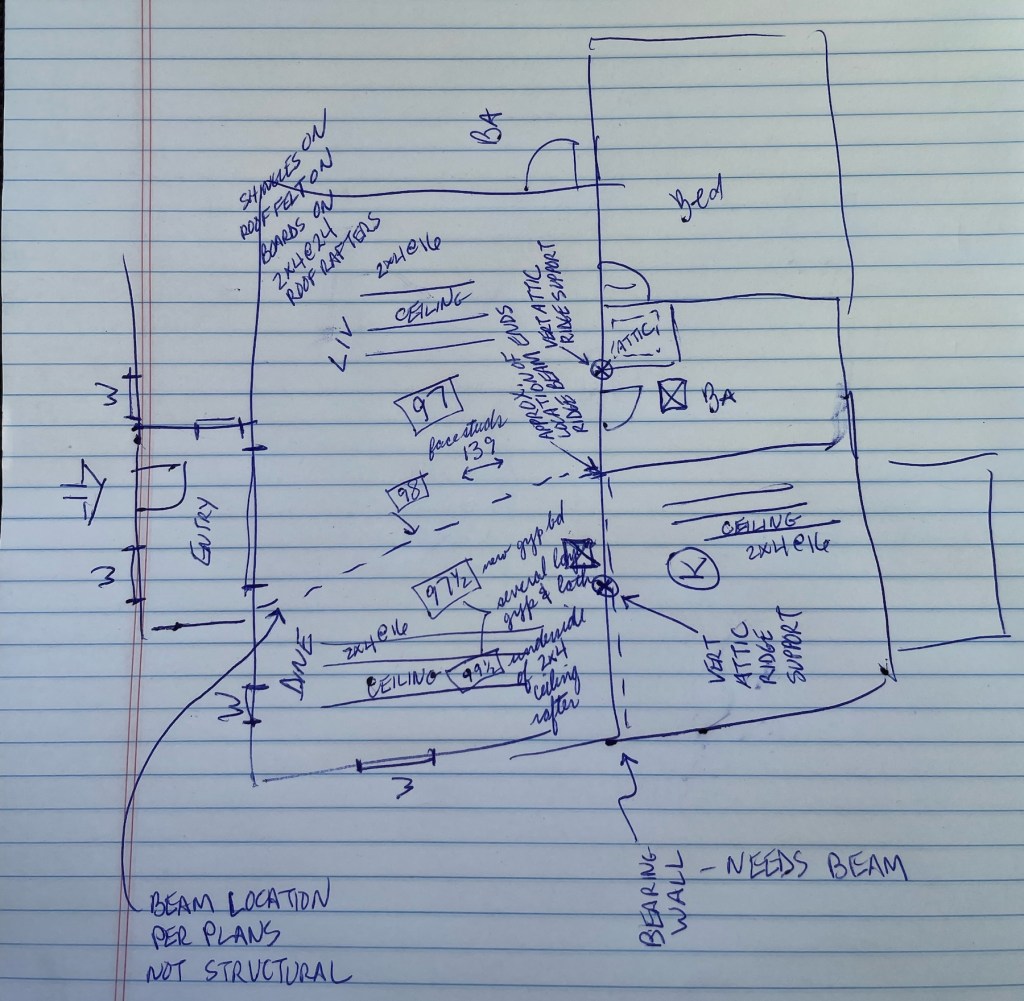 SHINGLES ON
ROOF FELT ON
BOARDS ON
2X4@24
ROOF RAFTERS
BA
Bed
2X4@16
CEILING
LIV
VERT ATTIC
RIDGE SUPPORT
APPROX. OF ENDS
LOCATION BEAM
RIDGE BEAM
ATTIC
BA
W
97
face studs
139
98
ENTRY
W
CEILING
2X4@16
K
97½
new gyp bd
several
gyp & lath
2X4@16
CEILING
99½
underside
of 2x4
ceiling
rafter
W
3
VERT
ATTIC
RIDGE
SUPPORT
BEARING
WALL
- NEEDS BEAM
BEAM LOCATION
PER PLANS
NOT STRUCTURAL